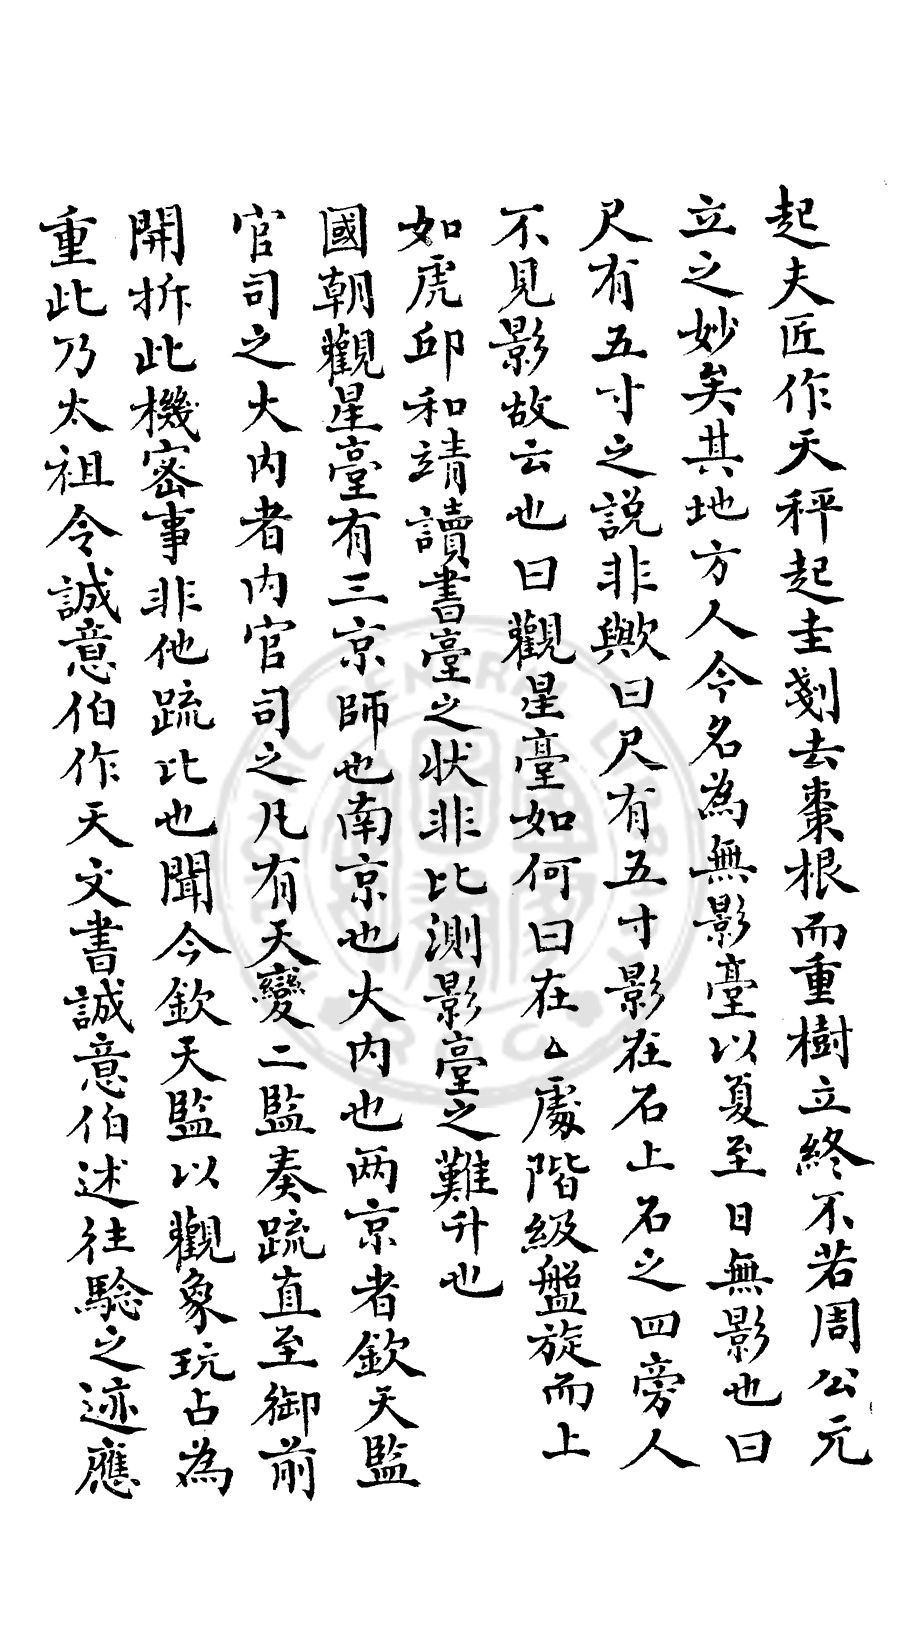 起夫匠作天秤起圭剗去棗根而重樹立終不若周公元
立之妙矣其地方人今名為無影臺以夏至日無影也曰
尺有五寸之說非歟曰尺有五寸影在石上石之四旁人
不見影故云也曰觀星臺如何曰在厶處階級盤旋而上
如虎邱和靖讀書臺之狀非比測影臺之難升也
國朝觀星臺有三京師也南京也大內也两京者欽天監
官司之大內者內官司之凡有天變二監奏疏直至御前
開拆此機密事非他疏比也聞今欽天監以觀象玩占為
重此乃太祖令誠意伯作天文書誠意伯述往騐之迹應
CENTRAL
R.O.C